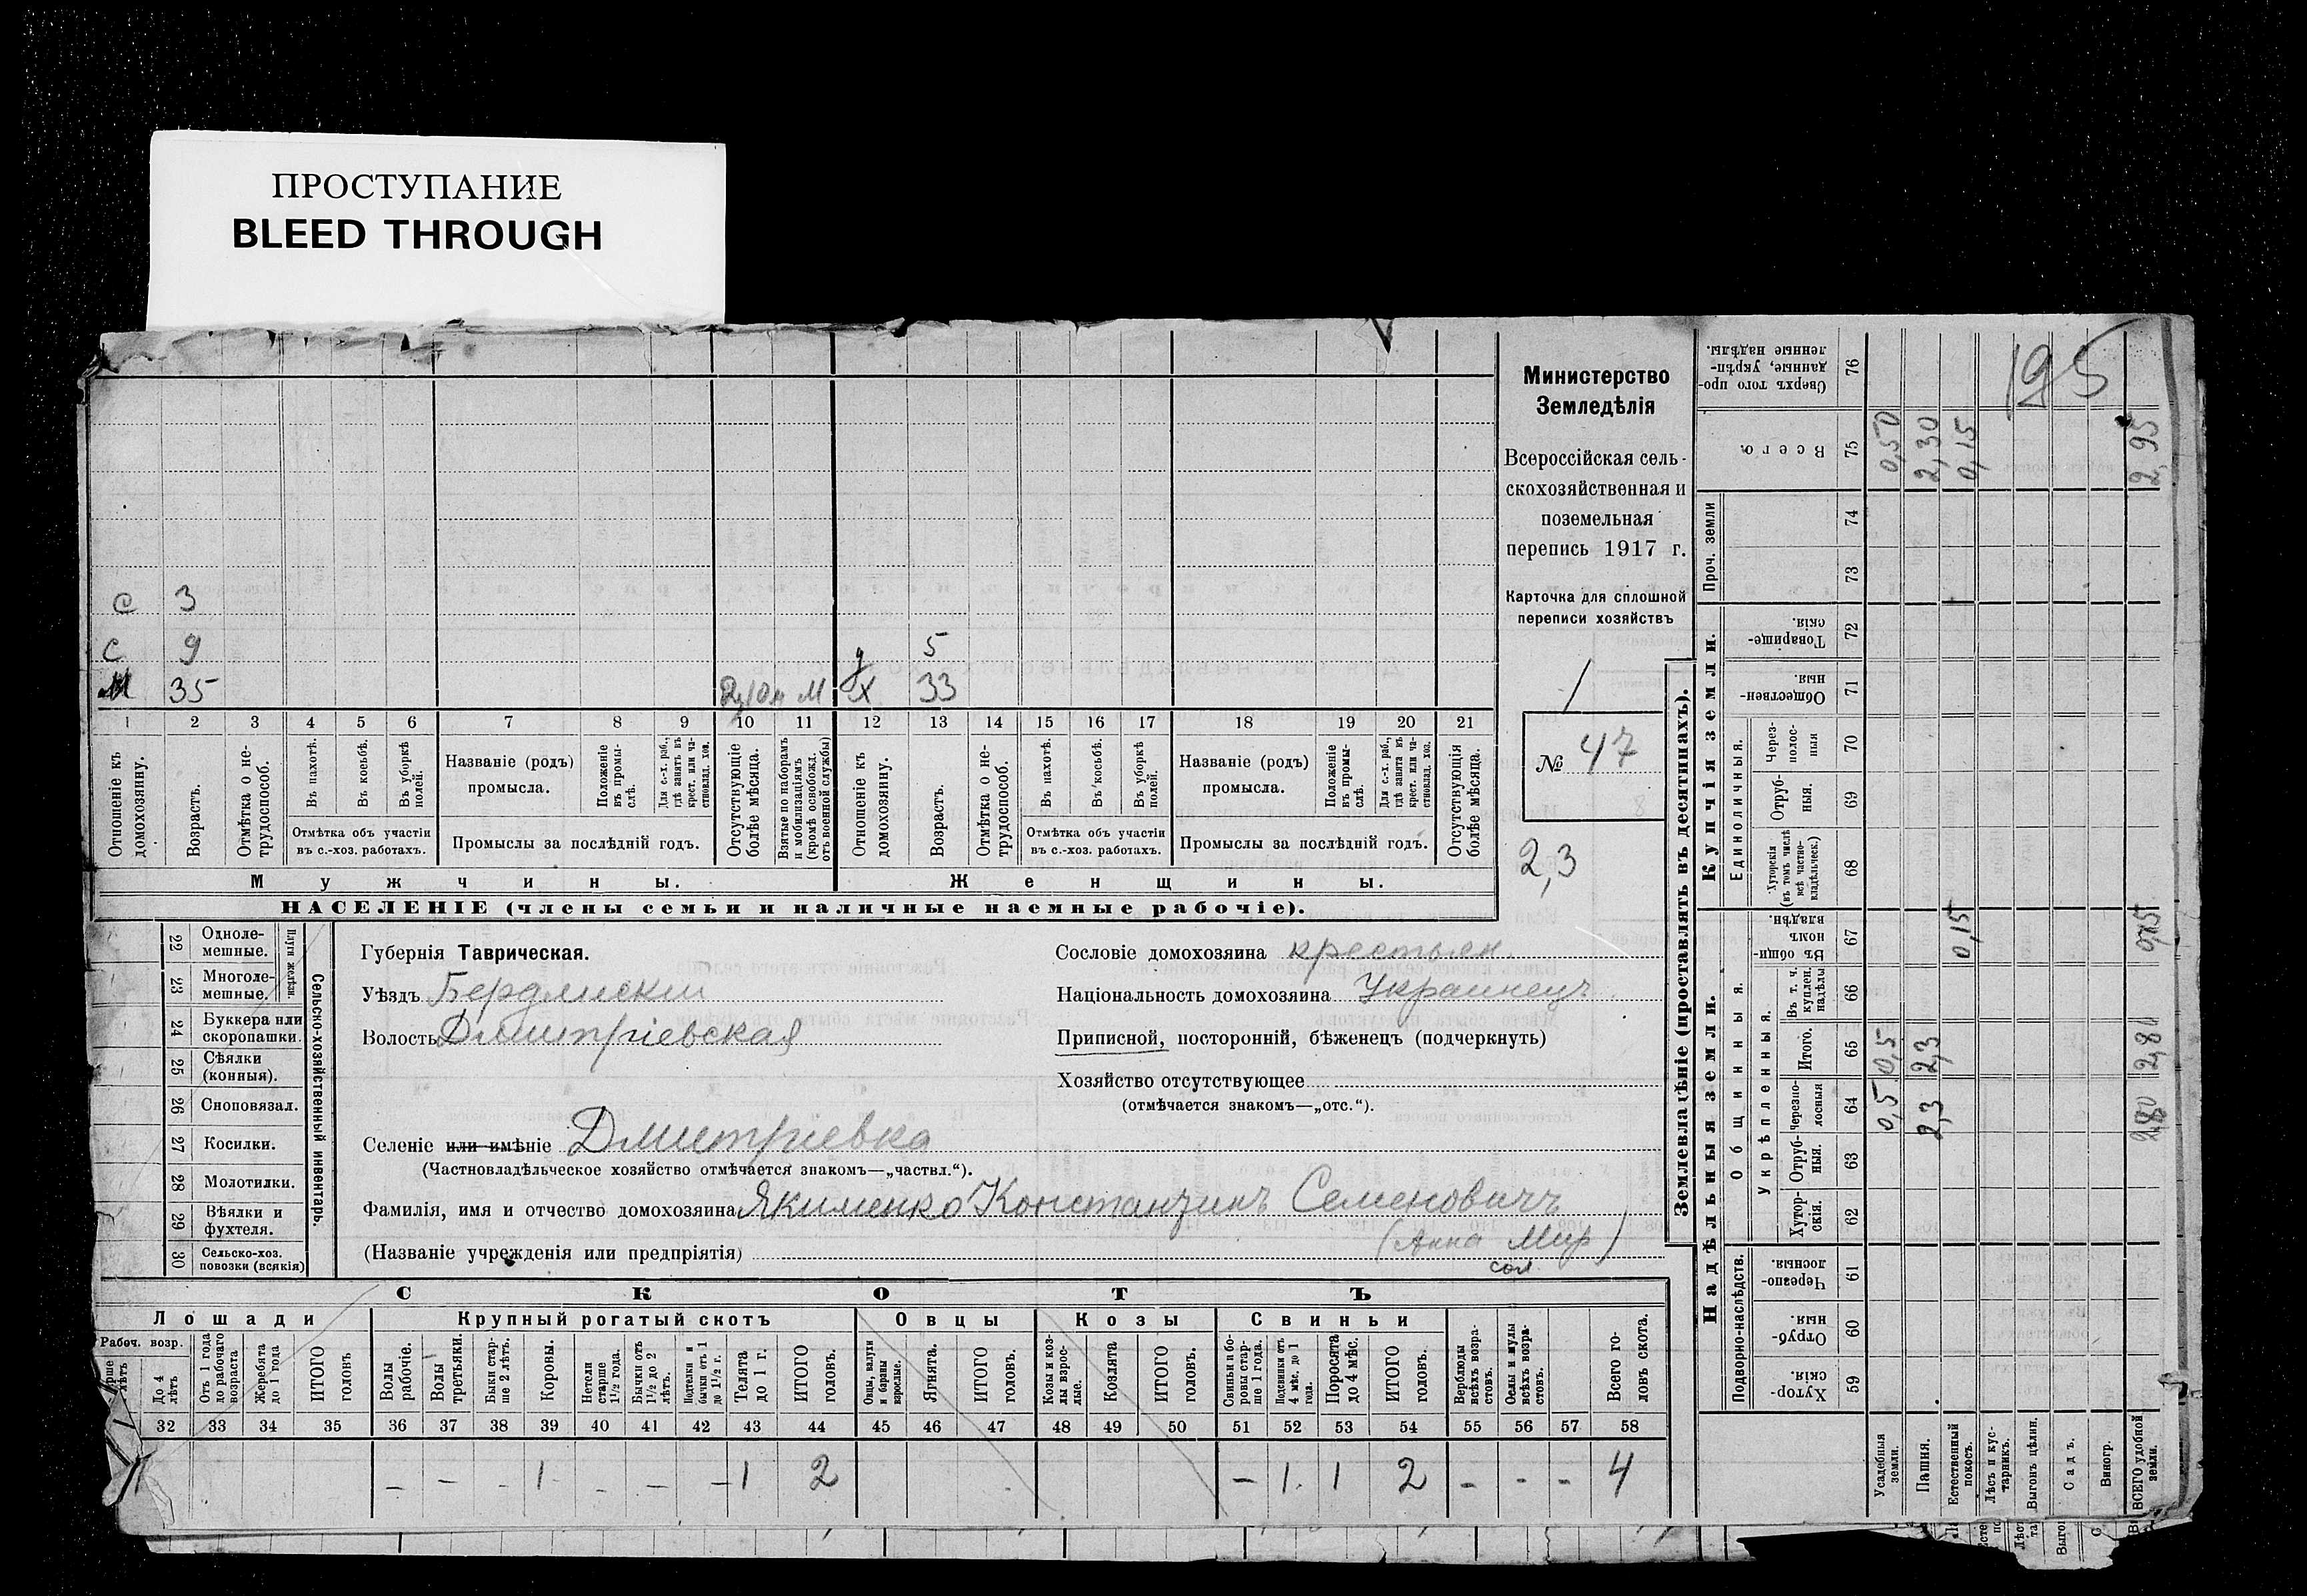 ПРОСТУПАНИЕ
BLEED THROUGH
с 3
с 9
д 5
М 35
М
Х 33
1 2 3 4 5 6 7 8 9 10 11 12 13 14 15 16 17 18 19 20 21
Отношеніе къ домохозяину.
Возрастъ.
Отмѣтка о не-трудоспособ.
Въ пахотѣ.
Въ косьбѣ.
Въ уборкѣ полей.
Отмѣтка объ участіи въ с.-хоз. работахъ.
Названіе (родъ) промысла.
Положеніе въ промы-слѣ.
Для с.-х. раб., гдѣ занятъ въ крест. или ча-стновлад. хоз.
Промыслы за послѣдній годъ.
Отсутствующіе болѣе мѣсяца.
Взятые по наборамъ и мобилизаціямъ (кромѣ освобожд. отъ военной службы)
Отношеніе къ домохозяину.
Возрастъ.
Отмѣтка о не-трудоспособ.
Въ пахотѣ.
Въ косьбѣ.
Въ уборкѣ полей.
Отмѣтка объ участіи въ с.-хоз. работахъ.
Названіе (родъ) промысла.
Положеніе въ промы-слѣ.
Для с.-х. раб., гдѣ занята въ крест. или ча-стновлад. хоз.
Промыслы за послѣдній годъ.
Отсутствующія болѣе мѣсяца.
Мужчины.
Женщины.
НАСЕЛЕНІЕ (члены семьи и наличные наемные рабочіе).
Министерство
Земледѣлія
Всероссійская сель-
скохозяйственная и
поземельная
перепись 1917 г.
Карточка для сплошной
переписи хозяйствъ
№ 47
2,3
Сельско-хозяйственный инвентарь.
Плуги желѣзн.
22 Одноле-мешные.
23 Многоле-мешные.
24 Буккера или скоропашки.
25 Сѣялки (конныя).
26 Сноповязал.
27 Косилки.
28 Молотилки.
29 Вѣялки и фухтеля.
30 Сельско-хоз. повозки (всякія)
Губернія Таврическая.
Уѣздъ Бердянскій
Волость Дмитріевская
Селеніе или имѣніе Дмитріевка
(Частновладѣльческое хозяйство отмѣчается знакомъ—„частвл.“).
Фамилія, имя и отчество домохозяина Якименко Константинъ Семеновичъ
(Анна Мир)
(Названіе учрежденія или предпріятія)
сол
Сословіе домохозяина крестьян.
Національность домохозяина Украинецъ
Приписной, посторонній, бѣженецъ (подчеркнуть)
Хозяйство отсутствующее
(отмѣчается знакомъ—„отс.“).
СКОТЪ
Лошади
Крупный рогатый скотъ
Овцы
Козы
Свиньи
Рабоч. возр.
До 4 лѣтъ
Отъ 1 года до рабочаго возраста
Жеребята до 1 года
ИТОГО головъ
Волы рабочіе.
Волы третьяки.
Быки стар-ше 2 лѣтъ.
Коровы.
Нетели старше 1½ года.
Бычки отъ 1½ до 2 лѣтъ.
Подтелки и бычки отъ 1 до 1½ г.
Телята до 1 г.
ИТОГО головъ.
Овцы, валухи и бараны взрослые.
Ягнята.
ИТОГО головъ.
Козы и коз-лы взрос-лые.
Козлята
ИТОГО головъ.
Свиньи и бо-ровы стар-ше 1 года.
Подсвинки отъ 4 мѣс. до 1 года.
Поросята до 4 мѣс.
ИТОГО головъ.
Верблюды всѣхъ возра-стовъ.
Ослы и мулы всѣхъ возра-стовъ.
Всего го-ловъ скота.
32 33 34 35 36 37 38 39 40 41 42 43 44 45 46 47 48 49 50 51 52 53 54 55 56 57 58
– – – 1 – – – 1 2 – 1 1 2 – – – 4
Землевладѣніе (проставлять въ десятинахъ).
Надѣльныя земли.
Купчія земли.
Проч. земли
Подворно-наслѣдств.
Общинныя.
Укрѣпленныя.
Единоличныя.
Хутор-скія. 59
Отруб-ныя. 60
Черезпо-лосныя 61
Хутор-скія. 62
Отруб-ныя. 63
черезпо-лосныя 64
Итого. 65
Въ т. ч. куплен. надѣлы 66
Въ общин-номъ владѣн. 67
Хуторскія (въ томъ числѣ всѣ частно-владѣльческ.) 68
Отруб-ныя. 69
Через-полос-ныя 70
Обществен-ныя. 71
Товарище-скія. 72
73
74
Всего. 75
Сверхъ того про-данные, укрѣп-ленные надѣлы. 76
195
Усадебныя земли. 0,5 0,5 0,50
Пашня. 2,3 2,3 2,30
Естественный покосъ. 0,15 0,15
Лѣсъ и кус-тарникъ.
Выгонъ цѣлин.
Садъ.
Виногр.
ВСЕГО удобной земли. 2,80 2,80 0,15 2,95